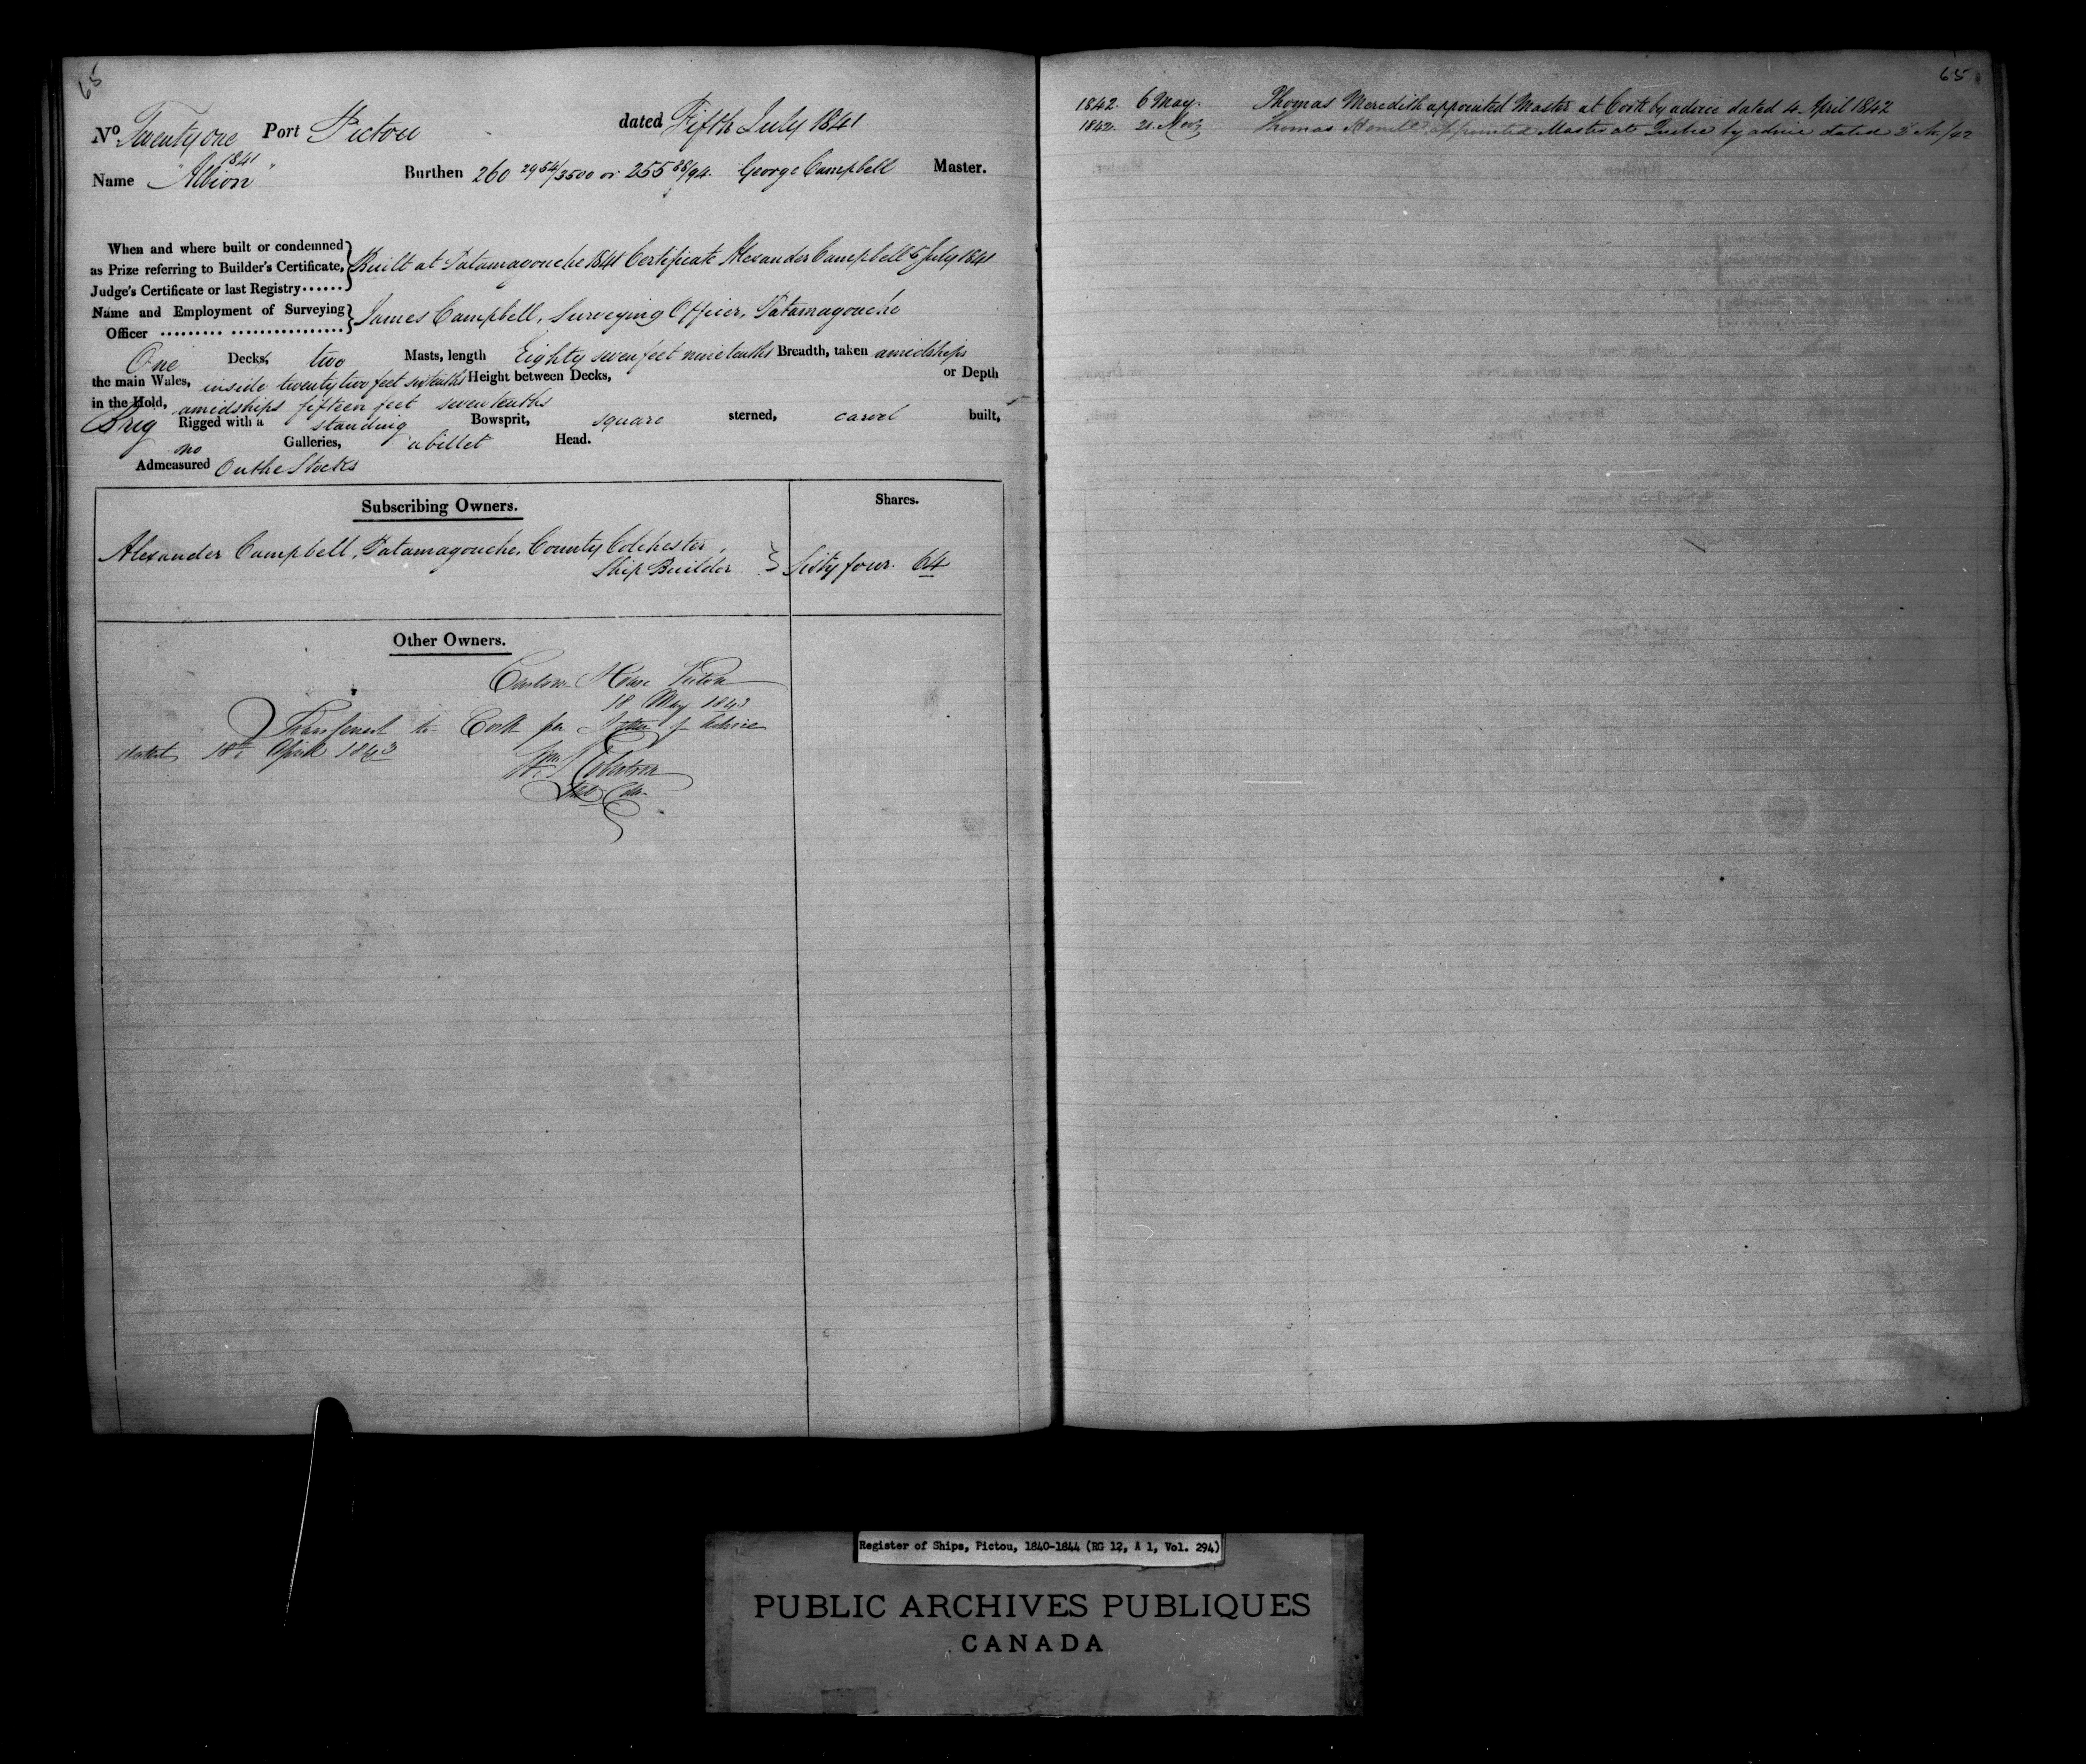 65
No Twenty one Port Pictou dated Fifth July 1841
1841
Name "Albion" Burthen 260 2954/3500 or 255 88/94 George Campbell Master.
When and where built or condemned
as Prize referring to Builder's Certificate, Built at Tatamagouche 1841 Certificate Alexander Campbell 5 July 1841
Judge's Certificate or last Registry......
Name and Employment of Surveying James Campbell, Surveying Officer, Tatamagouche
Officer ......... ................
One Decks, two Masts, length Eighty seven feet nine tenths Breadth, taken amidships
the main Wales, inside twenty two feet six tenths Height between Decks, or Depth
in the Hold, amidships fifteen feet seven tenths
Brig Rigged with a standing Bowsprit, square sterned, carvel built,
no Galleries, a billet Head.
Admeasured On the Stocks
Subscribing Owners. Shares.
Alexander Campbell, Tatamagouche, County Colchester,
Ship Builder Sixty four. 64
Other Owners.
Custom House Pictou
18 May 1843
Transferred to Cork per Letter of Advice
dated 18th April 1843
Wm Robertson
65
1842. 6 May. Thomas Meredith appointed Master at Cork by advice dated 4 April 1842
1842. 21. Novr Thomas appointed Master at Quebec by advice dated
Register of Ships, Pictou, 1840-1844 (RG 12, A 1, Vol. 294)
PUBLIC ARCHIVES PUBLIQUES
CANADA